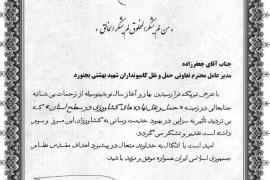 من لم یشکر المخلوق لم یشکر الخالق
جناب آقای جعفرزاده
مدیر عامل محترم تعاونی حمل و نقل کامیونداران شهید بهشتی بجنورد
با عرض تبریک فرا رسیدن بهار و آغاز سال نو بدینوسیله از زحمات بی شائبه
جنابعالی در زمینه « حمل و نقل نهاده های کشاورزی در سطح استان » که
بی تردید تأثیر به سزایی در بهبود خدمت رسانی به کشاورزان این مرز و بوم
داشته است تقدیر و تشکر می گردد.
امید است با اتکال به خداوند متعال در پیشبرد اهداف مقدس نظام
جمهوری اسلامی ایران همواره موفق و مؤید باشید.